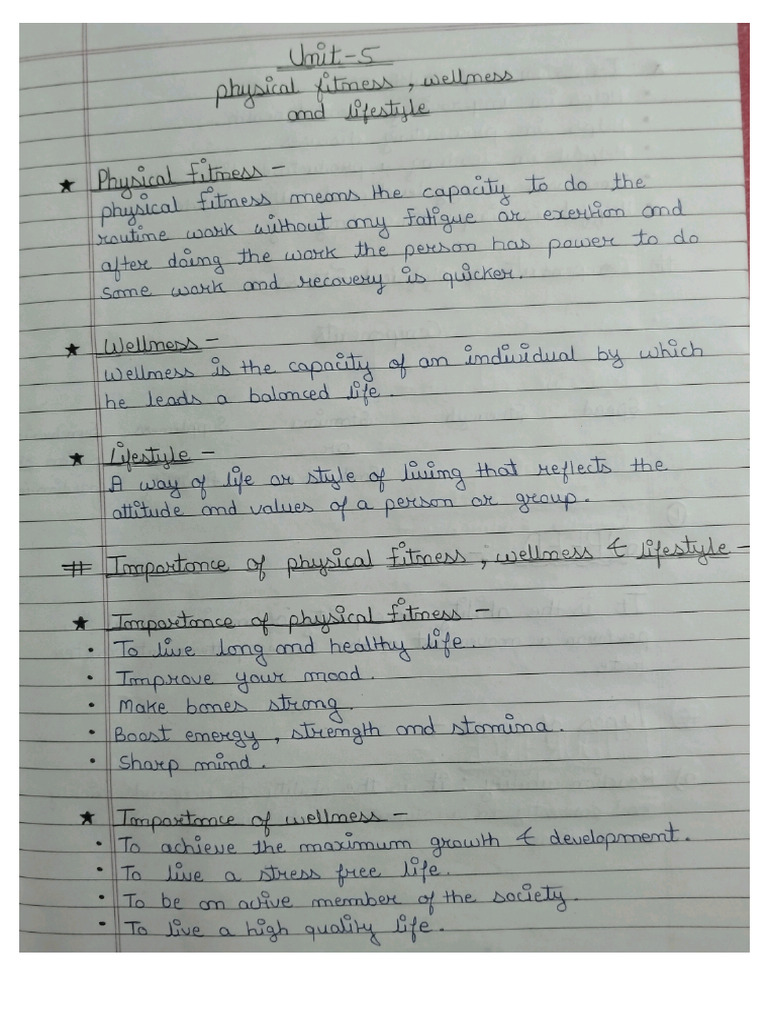 Unit-5
physical fitness, wellness
and lifestyle
★ Physical fitness -
physical fitness means the capacity to do the
routine work without any fatigue or exertion and
after doing the work the person has power to do
some work and recovery is quicker.
★ Wellness -
Wellness is the capacity of an individual by which
he leads a balanced life.
★ Lifestyle -
A way of life or style of living that reflects the
attitude and values of a person or group.
# Importance of physical fitness, wellness & lifestyle -
★ Importance of physical fitness -
• To live long and healthy life.
• Improve your mood.
• Make bones strong.
• Boost energy, strength and stamina.
• Sharp mind.
★ Importance of wellness -
• To achieve the maximum growth & development.
• To live a stress free life.
• To be an active member of the society.
• To live a high quality life.